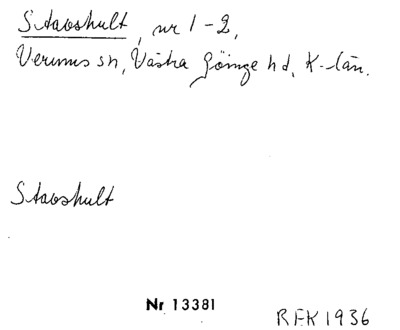 Stavshult, nr 1-2,
Verums sn, Västra Göinge hd, K-län.
Stavshult
Nr 13381
REK 1936